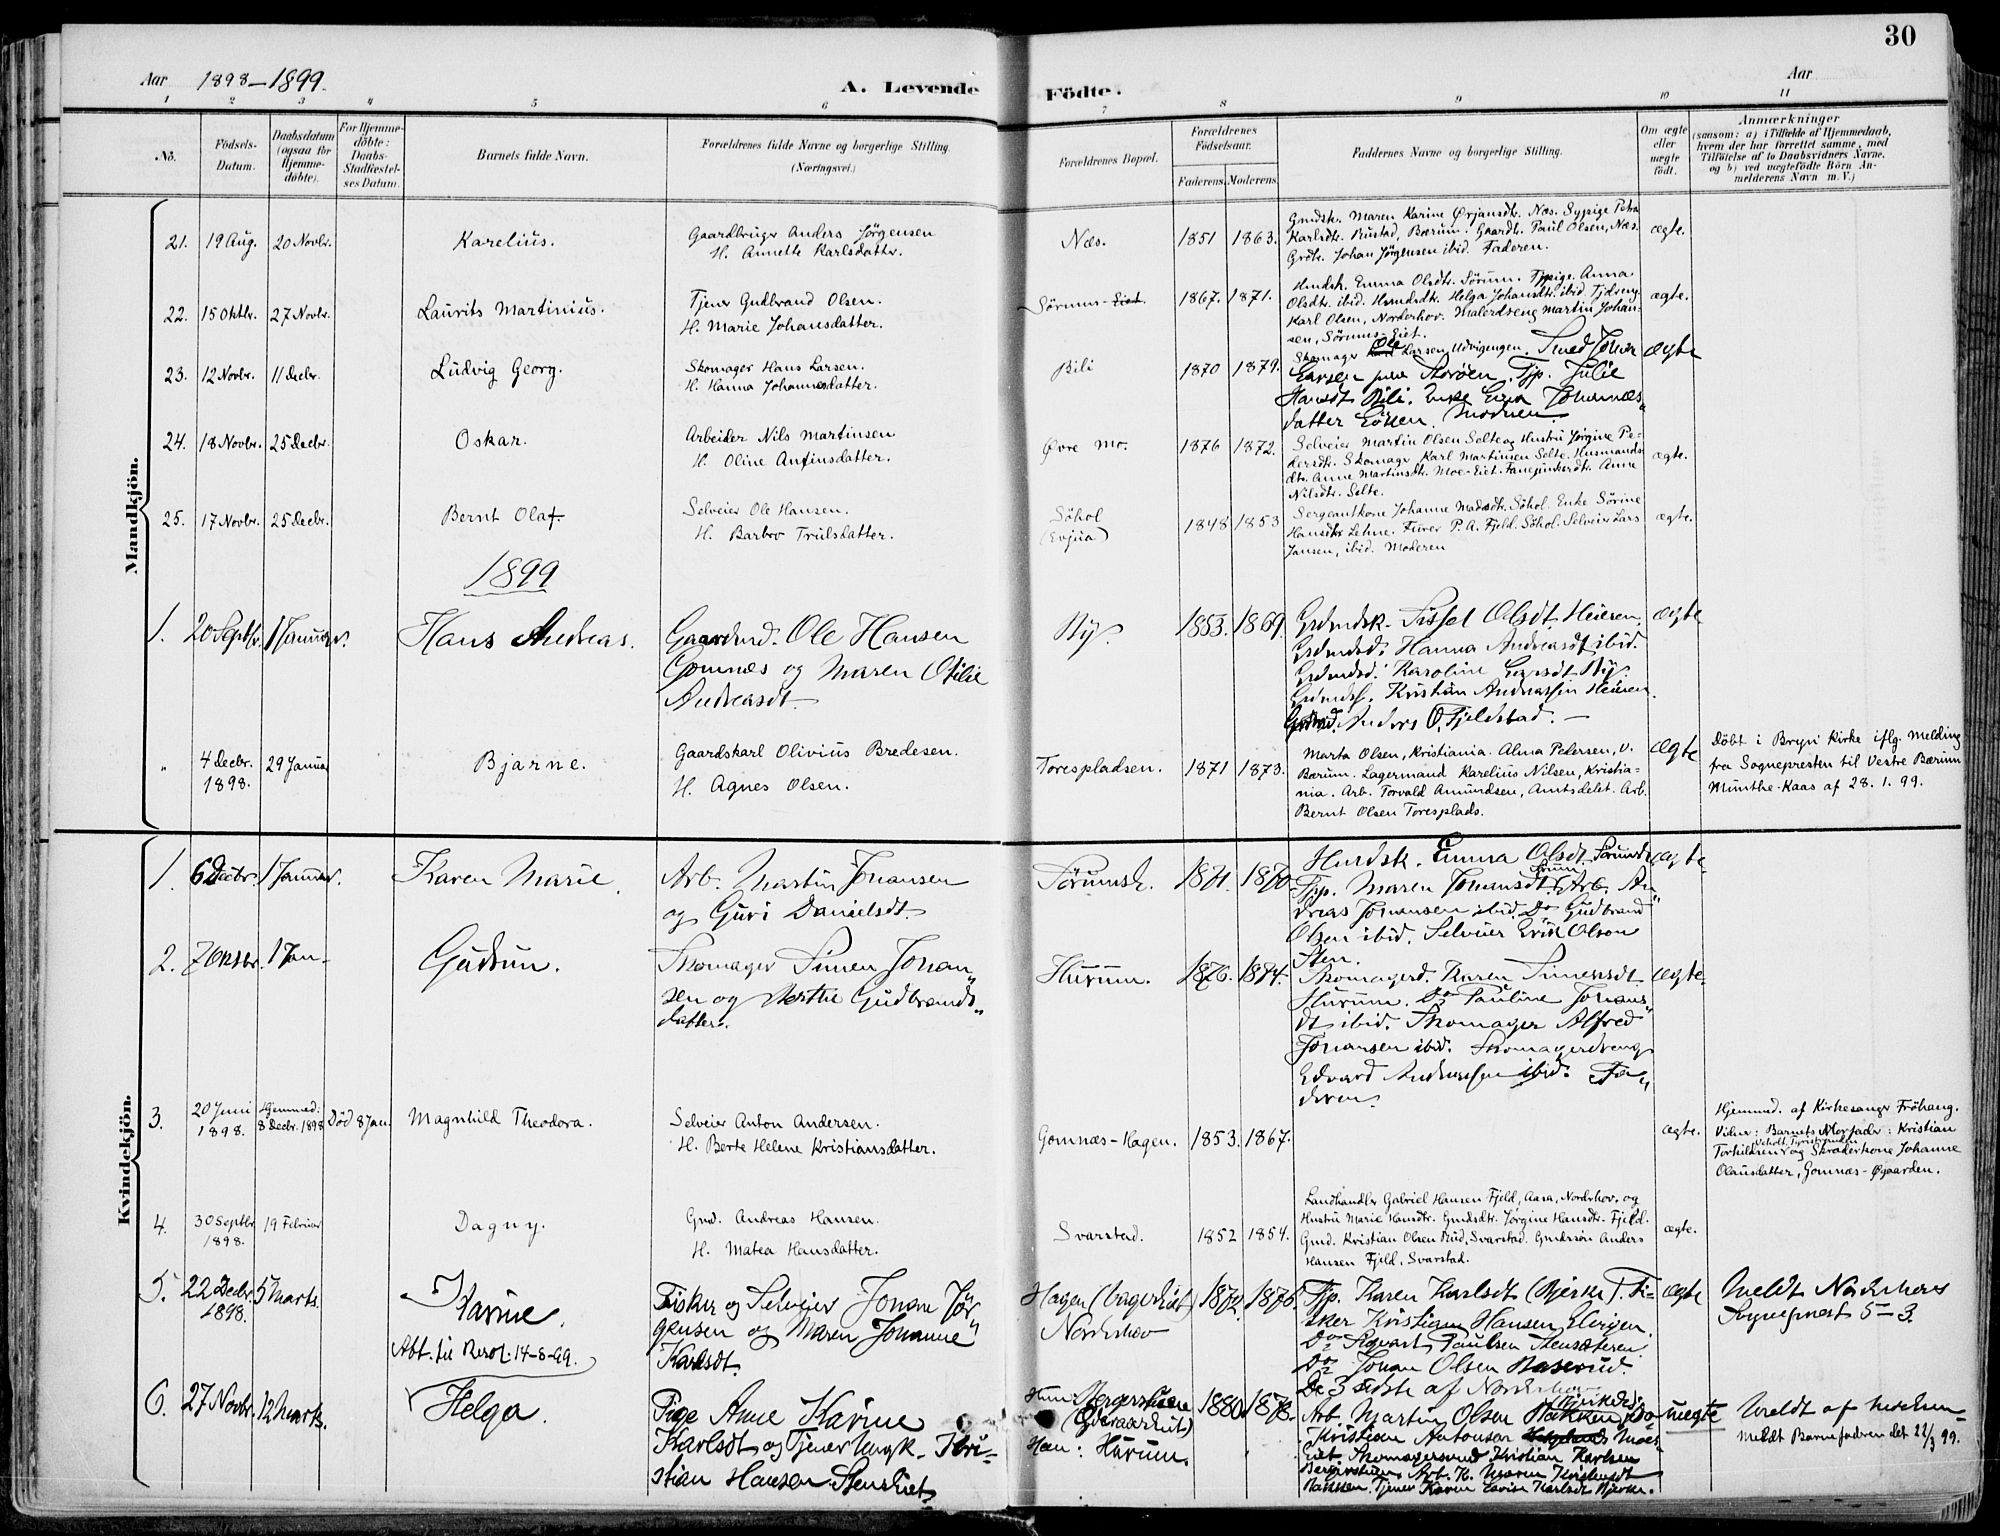 30
Aar 1898–1899.
A. Levende Födte.
Aar
1 2 3 4 5 6 7 8 9 10 11
Nö.
Födsels-Datum.
Daabsdatum (ogsaa for Hjemme-döbte).
For Hjemme-döbte: Daabs-Stadfæstel-ses Datum.
Barnets fulde Navn.
Forældrenes fulde Navne og borgerlige Stilling.
(Næringsvei.)
Forældrenes Bopæl.
Forældrenes Födselsaar.
Faderens. Moderens.
Faddernes Navne og borgerlige Stilling.
Om ægte eller uægte födt.
Anmærkninger
(saasom: a) i Tilfælde af Hjemmedaab,
hvem der har forrettet samme, med
Tilföielse af to Daabsvidners Navne.
og b) ved uægtefödte Börn An-
melderens Navn m. V.)
Mandkjön.
21. 19 Aug. 20 Novbr. Karelius.
Gaardbruger Anders Jörgensen
H. Annette Karlsdatter.
Næs. 1851 1863.
Gmdsk. Maren Karine Ørjansdtr. Næs. Sypige Petra
Karlsdtr. Rustad, Bærum. Gaardbr. Paul Olsen, Næs.
Grdbr. Johan Jörgensen ibid. Faderen.
ægte.
22. 15 Oktbr. 27 Novbr. Laurits Martinius.
Tjener Gudbrand Olsen.
H. Marie Johansdatter.
Sörums-Eiet. 1867. 1871.
Hmdsk. Emma Olsdtr. Sörum. Tjpige. Anna
Olsdtr. ibid. Hmdsdtr. Helga Johansdtr. ibid. Tjdreng
Karl Olsen, Norderhov. Malerdreng Martin Johan-
sen, Sörums-Eiet.
ægte.
23. 12 Novbr. 11 Decbr. Ludvig Georg.
Skomager Hans Larsen.
H. Hanna Johannesdatter.
Bili 1870 1879.
Skomager Ole Larsen, Udvigengen. Smed Johan
Larsen Storöen. Tjp. Julie
Hansdt Bili. Enke Johannes-
datter Moderen.
ægte
24. 18 Novbr. 25 Decbr. Oskar.
Arbeider Nils Martinsen
H. Oline Antinsdatter.
Øvre Mo. 1876 1872.
Selveier Martin Olsen Selte og Hustru Jørgine Pe-
dersdtr. Skomager Karl Martinsen Selte. Husmands-
dtr. Anne Martinsdtr. Moe-Eiet. Fanejunkerdtr. Anne
Nilsdtr. Selte.
ægte.
25. 17 Novbr. 25 Decbr. Bernt Olaf.
Selveier Ole Hansen.
H. Barbro Trulsdatter.
Söhol
(Evjua) 1848 1853
Sergeantkone Johanne Madsdtr. Söhol. Enke Sörine
Hansdtr. Lehne. Furer P. A. Fjeld. Söhol. Selveier Lars
Jansen, ibid. Moderen
ægte.
1899
1. 20 Septbr. 1 Januar. Hans Andreas.
Gaardmd. Ole Hansen
Gomnæs og Maren Otilie
Andreasdt.
By. 1853. 1869.
Grdmdsk. Sissel Olsdt. Heieren.
Grdmdsd. Hanna Andreasdt ibid.
Grdmdsd. Karoline Larsdt By.
Grdmds. Kristian Andreassen Heieren.
Grdmd. Anders O. Fjeldstad.
ægte
" 4 Decbr. 1898. 29 Januar Bjarne.
Gaardskarl Olivius Bredesen.
H. Agnes Olsen.
Torespladsen. 1871 1873.
Marta Olsen, Kristiania. Alma Petersen, V.
Bærum. Lagermand Karelius Nilsen, Kristia-
nia. Arb. Torvald Amundsen, Amtsdelet. Arb.
Bernt Olsen Toresplads.
ægte
Döbt i Bryn Kirke iflg. Melding
fra Sognepresten til Vestre Bærum
Munthe-Kaas af 28. 1. 99.
Kvindekjön.
1. 6 Decbr. 1 Januar. Karen Marie.
Arb. Martin Johansen
og Guri Danielsdt.
Sörumsk. 1871. 1870.
Hmdsk. Emma Olsdt. Sörum
Tjp. Maren Johansdt. Sörum. Arb. An-
dreas Johansen ibid. Do Gudbrand
Olsen ibid. Selveier Erik Olson
Sten.
ægte.
2. 7 Oktbr. 1 Jan. Gudrun.
Skomager Simen Johan-
sen og Berthe Gudbrands-
datter.
Hurum. 1876. 1874.
Skomagerd. Karen Simensdt
Hurum. Do Pauline Johans-
dt ibid. Skomager Alfred
Johansen ibid. Skomagerdreng
Edvard Andreassen ibid. Fa-
deren.
ægte.
3. 20 Juni 1898. Hjemmed: 8 Decbr. 1898 Död 8 Jan. Magnhild Theodora.
Selveier Anton Andersen.
H. Berte Helene Kristiansdatter.
Gomnæs-Hagen. 1853. 1867.
ægte.
Hjemmed. af Kirkesanger Fröhaug.
Vidner: Barnets Morfader: Kristian
Torkildsen Veholt, Tyristranden og Skræderkone Johanne
Olausdatter, Gomnæs-Øgaarden.
4. 30 Septbr. 1898. 19 Februar Dagny.
Gmd. Andreas Hansen.
H. Matea Hansdatter.
Svarstad. 1852 1854.
Landhandler Gabriel Hansen Fjeld, Aasa, Norderhov. og
Hustru Marie Hansdtr. Gmdsdtr. Jørgine Hansdtr. Fjeld.
Gmd. Kristian Olsen Rud, Svarstad. Gmdssön Anders
Hansen Fjeld, Svarstad.
ægte.
5. 22 Decbr. 1898. 5 Marts. Karine.
Abt. til Resol. 14-8-99.
Fisker og Selveier Johan Jör-
gensen og Maren Johanne
Karlsdt.
Hagen (Vager Eiet)
Norderhov 1872. 1876.
Tjp. Karen Karlsdt (Bjerke). Fi-
sker Kristian Hansen Elvigen.
Do Sigvart Paulsen Stensæteren
Do Johan Olsen Naserud.
De 3 sidste af Norderhov
ægte
Meldt Norderhovs
Sogneprest 5-3.
6. 27 Novbr. 12 Marts. Helga.
Pige Anne Karine
Karlsdt og Tjener Ungk. Kri-
stian Hansen Stenseiet.
Hun: Bergerstuen
Han: Hurum. 1880. 1878.
Arb. Martin Olsen Bakken, Do
Kristian Antonsen Moes-
eiet. Skomagersvend Kristian Karlsen
Bergerstuen, Arb. K. Maren Kristensdt
Bakken. Tjener Karen Lovise Karlsdt Bjerke.
uægte
Meldt af Moderen
Meldt Barnefaderen det 22/3 99.